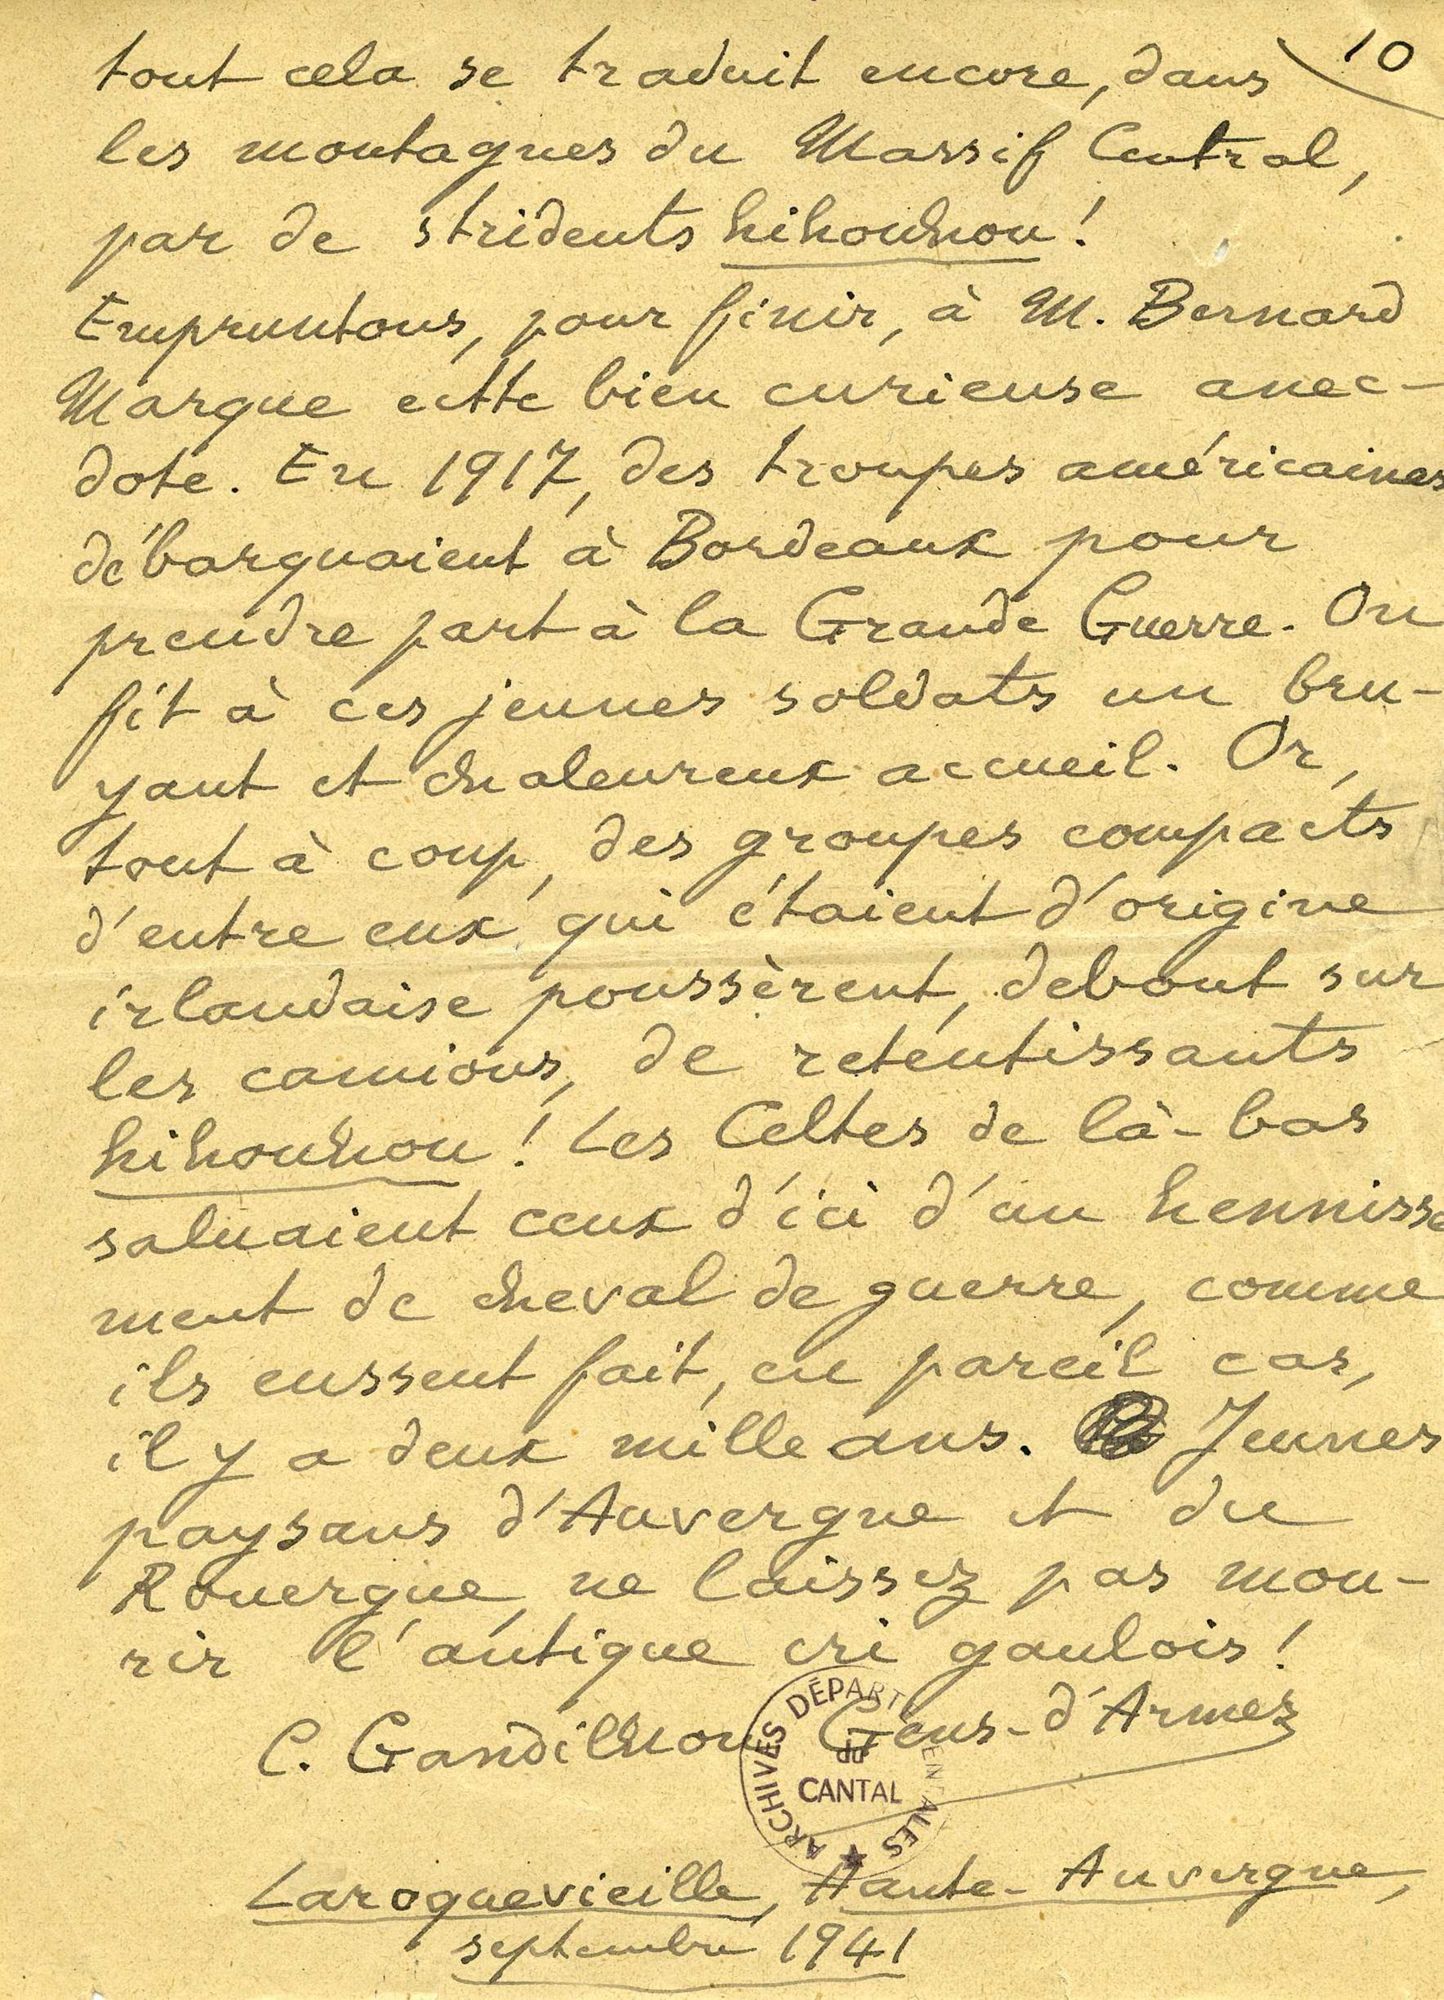 10
tout cela se traduit encore, dans
les montagnes du Massif Central,
par de stridents hihouhou !
Empruntons, pour finir, à M. Bernard
Marque cette bien curieuse anec-
dote. En 1917, des troupes américaines
débarquaient à Bordeaux pour
prendre part à la Grande Guerre. On
fit à ces jeunes soldats un bru-
yant et chaleureux accueil. Or,
tout à coup, des groupes compacts
d'entre eux qui étaient d'origine
irlandaise poussèrent, debout sur
les camions, de retentissants
hihouhou ! Les Celtes de là-bas
saluaient ceux d'ici d'un hennisse
ment de cheval de guerre, comme
ils eussent fait, en pareil cas,
il y a deux mille ans. Jeunes
paysans d'Auvergne et du
Rouergue, ne laissez pas mou-
rir l'antique cri gaulois !
C. Gandilhon Gens-d'Armes
ARCHIVES DÉPARTEMENTALES
du
CANTAL
Laroquevieille, Haute-Auvergne,
septembre 1941